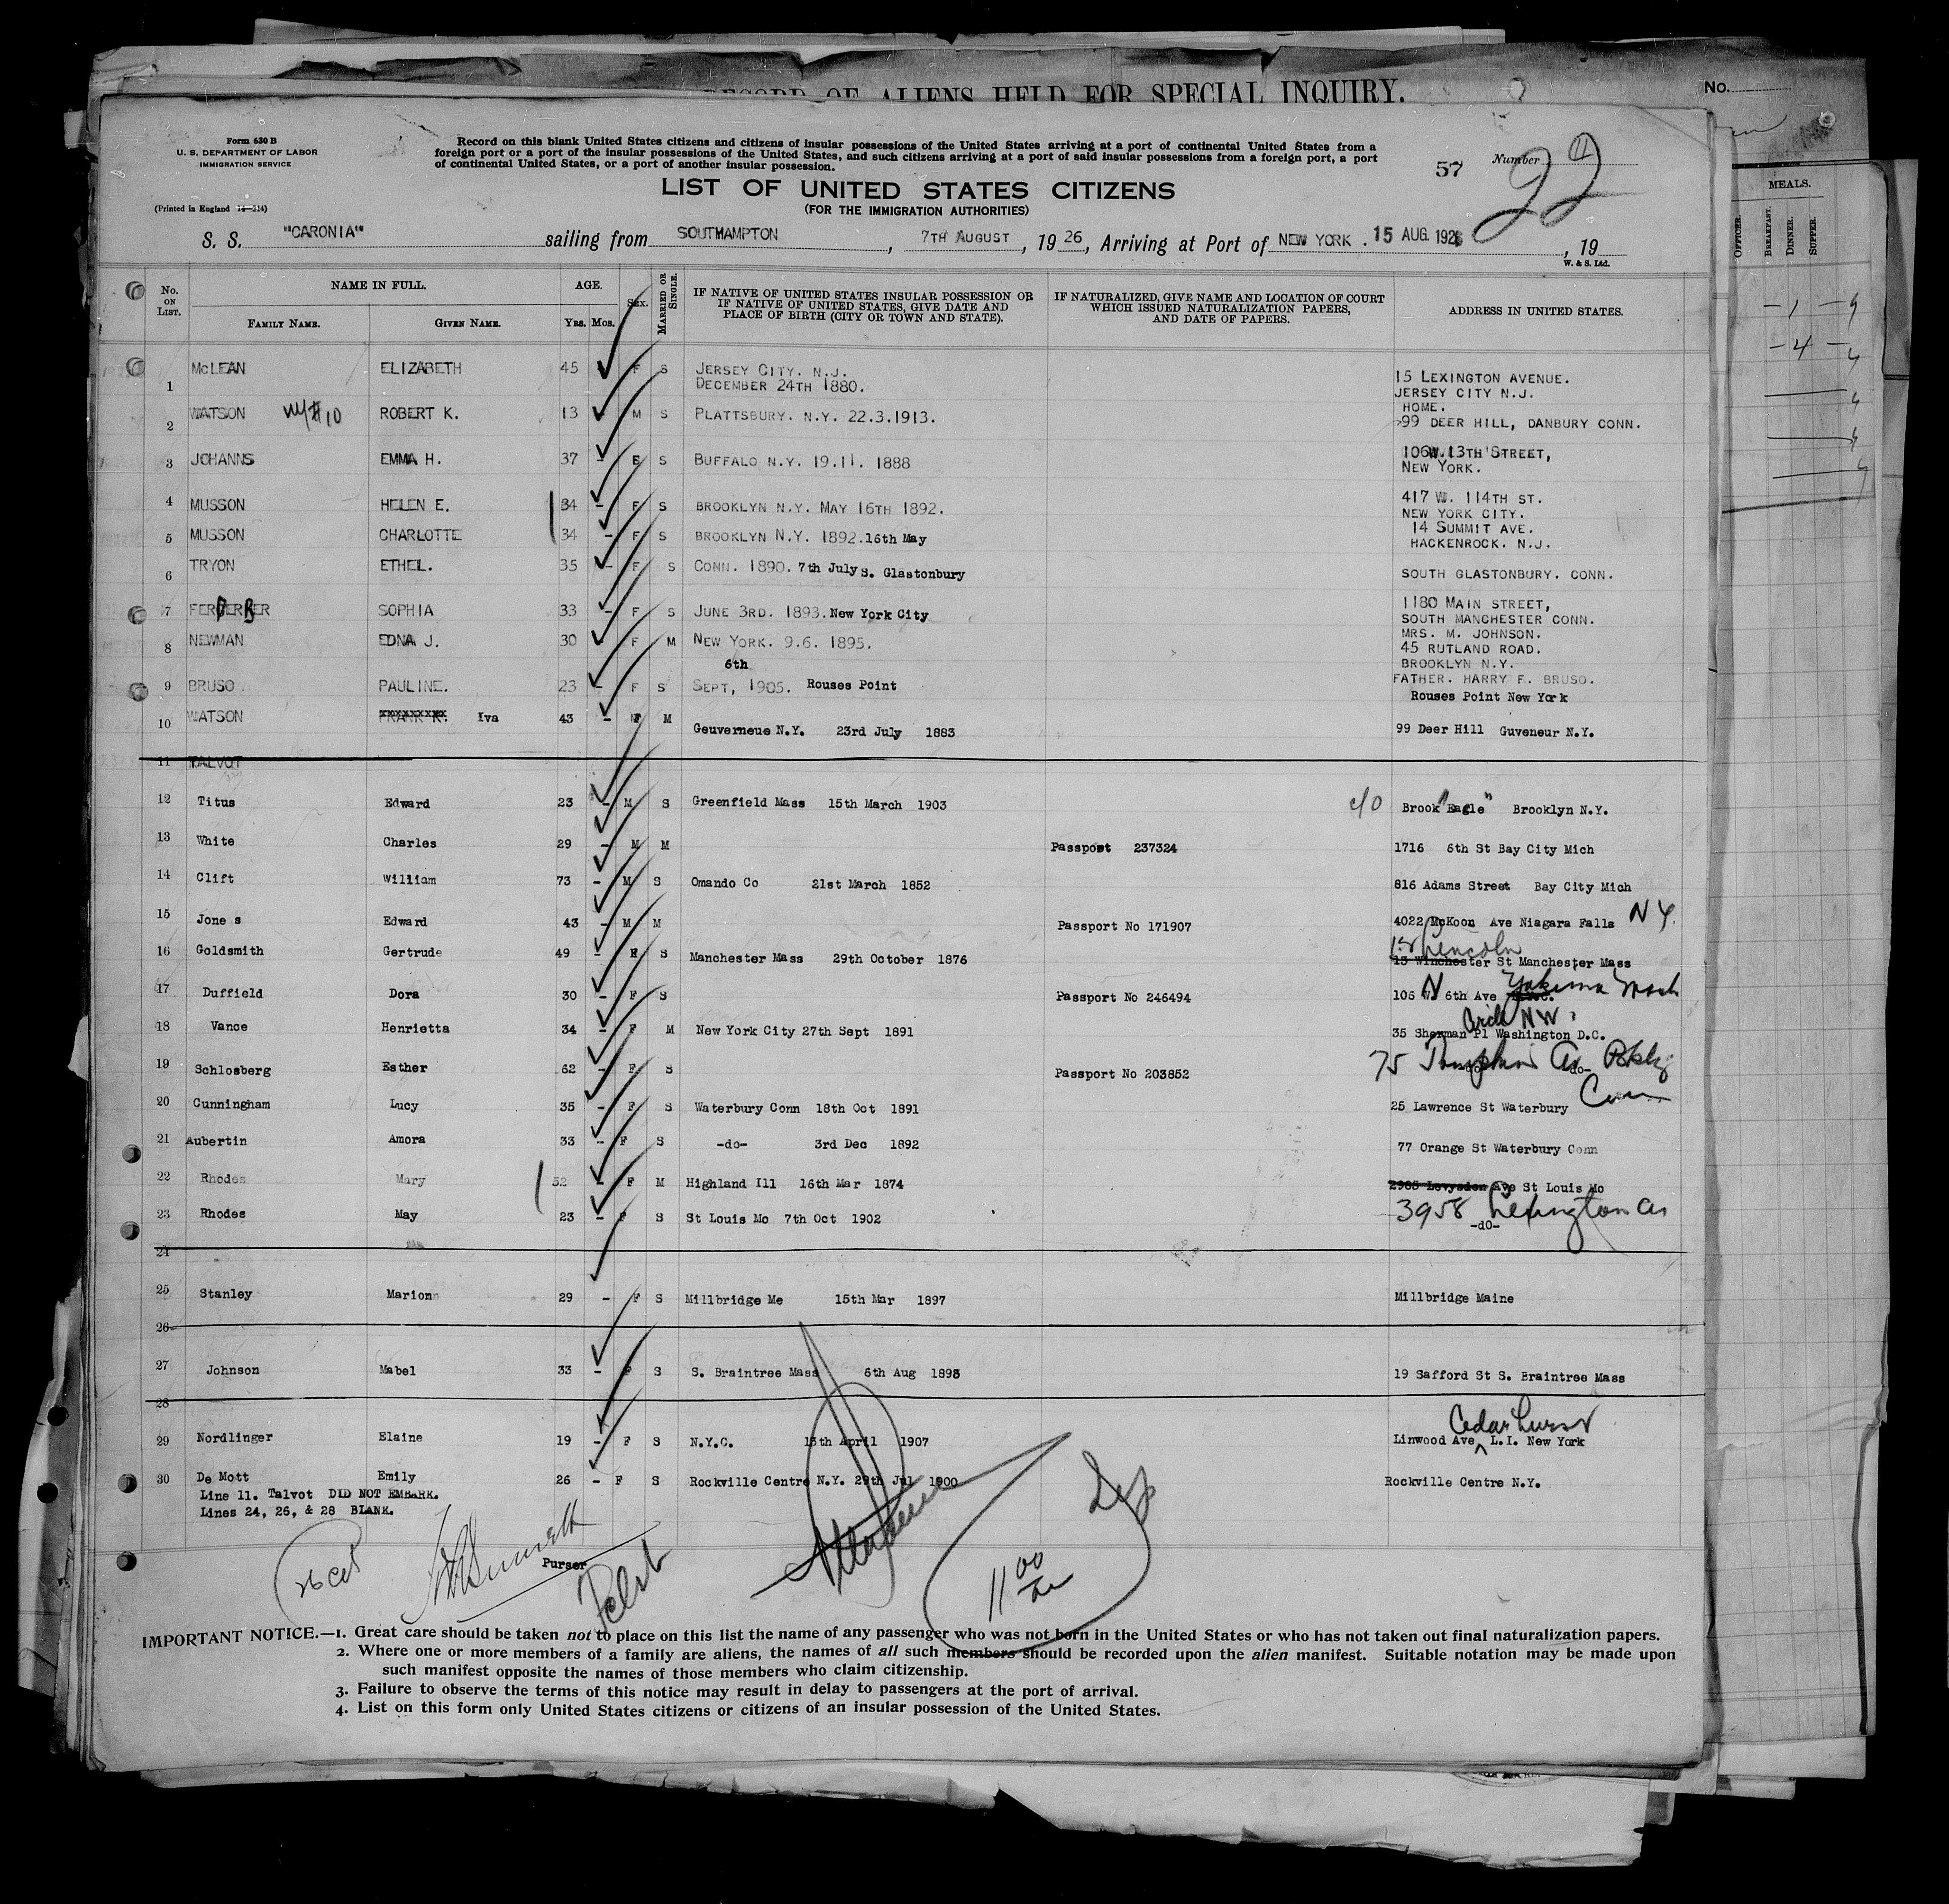 RECORD OF ALIENS HELD FOR SPECIAL INQUIRY.
No.
MEALS.
OFFICER. BREAKFAST. DINNER. SUPPER.
Form 630 B
U. S. DEPARTMENT OF LABOR
IMMIGRATION SERVICE
(Printed in England 14—214)
Record on this blank United States citizens and citizens of insular possessions of the United States arriving at a port of continental United States from a
foreign port or a port of the insular possessions of the United States, and such citizens arriving at a port of said insular possessions from a foreign port, a port
of continental United States, or a port of another insular possession.
57 Number 11
22
LIST OF UNITED STATES CITIZENS
(FOR THE IMMIGRATION AUTHORITIES)
S. S. "CARONIA" sailing from SOUTHAMPTON, 7TH AUGUST, 1926, Arriving at Port of NEW YORK. 15 AUG. 1926, 19
W. & S. Ltd.
No. ON LIST. NAME IN FULL. AGE. Sex. MARRIED OR SINGLE. IF NATIVE OF UNITED STATES INSULAR POSSESSION OR IF NATIVE OF UNITED STATES, GIVE DATE AND PLACE OF BIRTH (CITY OR TOWN AND STATE). IF NATURALIZED, GIVE NAME AND LOCATION OF COURT WHICH ISSUED NATURALIZATION PAPERS, AND DATE OF PAPERS. ADDRESS IN UNITED STATES.
FAMILY NAME. GIVEN NAME. Yrs. Mos.
1 McLEAN ELIZABETH 45 - F S JERSEY CITY. N.J. DECEMBER 24TH 1880. 15 LEXINGTON AVENUE. JERSEY CITY N.J.
2 WATSON ROBERT K. 13 - M S PLATTSBURY. N.Y. 22.3.1913. HOME. 99 DEER HILL, DANBURY CONN.
3 JOHANNS EMMA H. 37 - F S BUFFALO N.Y. 19.11. 1888 106W. 13TH STREET, NEW YORK.
4 MUSSON HELEN E. 34 - F S BROOKLYN N.Y. MAY 16TH 1892. 417 W. 114TH ST. NEW YORK CITY.
5 MUSSON CHARLOTTE 34 - F S BROOKLYN N.Y. 1892.16th May 14 SUMMIT AVE. HACKENROCK. N.J.
6 TRYON ETHEL. 35 - F S CONN. 1890. 7th July S. Glastonbury SOUTH GLASTONBURY. CONN.
7 SOPHIA 33 - F S JUNE 3RD. 1893. New York City 1180 MAIN STREET, SOUTH MANCHESTER CONN.
8 NEWMAN EDNA J. 30 F M NEW YORK. 9.6. 1895. MRS. M. JOHNSON. 45 RUTLAND ROAD. BROOKLYN N.Y.
9 BRUSO. PAULINE. 23 - F S 6th SEPT, 1905. Rouses Point FATHER. HARRY F. BRUSO. Rouses Point New York
10 WATSON FRANK K. Iva 43 - F M Geuverneue N.Y. 23rd July 1883 99 Deer Hill Guveneur N.Y.
11 TALVOT
12 Titus Edward 23 - M S Greenfield Mass 15th March 1903 c/o Brook "Eagle" Brooklyn N.Y.
13 White Charles 29 - M M Passport 237324 1716 6th St Bay City Mich
14 Clift William 73 - M S Omando Co 21st March 1852 816 Adams Street Bay City Mich
15 Jone s Edward 43 - M M Passport No 171907 4022 McKoon Ave Niagara Falls N Y.
16 Goldsmith Gertrude 49 - F S Manchester Mass 29th October 1876 15 Lincoln 13 Winchester St Manchester Mass
17 Duffield Dora 30 - F S Passport No 246494 106 N 6th Ave Yakima Wash
18 Vance Henrietta 34 - F M New York City 27th Sept 1891 35 Sherman Circle NW. Pl Washington D.C.
19 Schlosberg Esther 62 - F S Passport No 203852 75 -do-
20 Cunningham Lucy 35 - F S Waterbury Conn 18th Oct 1891 25 Lawrence St Waterbury Conn
21 Aubertin Amora 33 - F S -do- 3rd Dec 1892 77 Orange St Waterbury Conn
22 Rhodes Mary 52 - F M Highland Ill 16th Mar 1874 Ave St Louis Mo
23 Rhodes May 23 - F S St Louis Mo 7th Oct 1902 3958 Lexington Av -do-
24
25 Stanley Marion 29 - F S Millbridge Me 15th Mar 1897 Millbridge Maine
26
27 Johnson Mabel 33 - F S S. Braintree Mass 6th Aug 1893 19 Safford St S. Braintree Mass
28
29 Nordlinger Elaine 19 - F S N.Y.C. 15th April 1907 Linwood Ave Cedarhurst L.I. New York
30 De Mott Emily 26 - F S Rockville Centre N.Y. 29th Jul 1900 Rockville Centre N.Y.
Line 11. Talvot DID NOT EMBARK.
Lines 24, 26, & 28 BLANK.
Purser
11 00
IMPORTANT NOTICE.—1. Great care should be taken not to place on this list the name of any passenger who was not born in the United States or who has not taken out final naturalization papers.
2. Where one or more members of a family are aliens, the names of all such members should be recorded upon the alien manifest. Suitable notation may be made upon
such manifest opposite the names of those members who claim citizenship.
3. Failure to observe the terms of this notice may result in delay to passengers at the port of arrival.
4. List on this form only United States citizens or citizens of an insular possession of the United States.